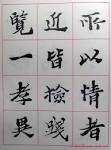 所以情者
近皆
覽一孝異